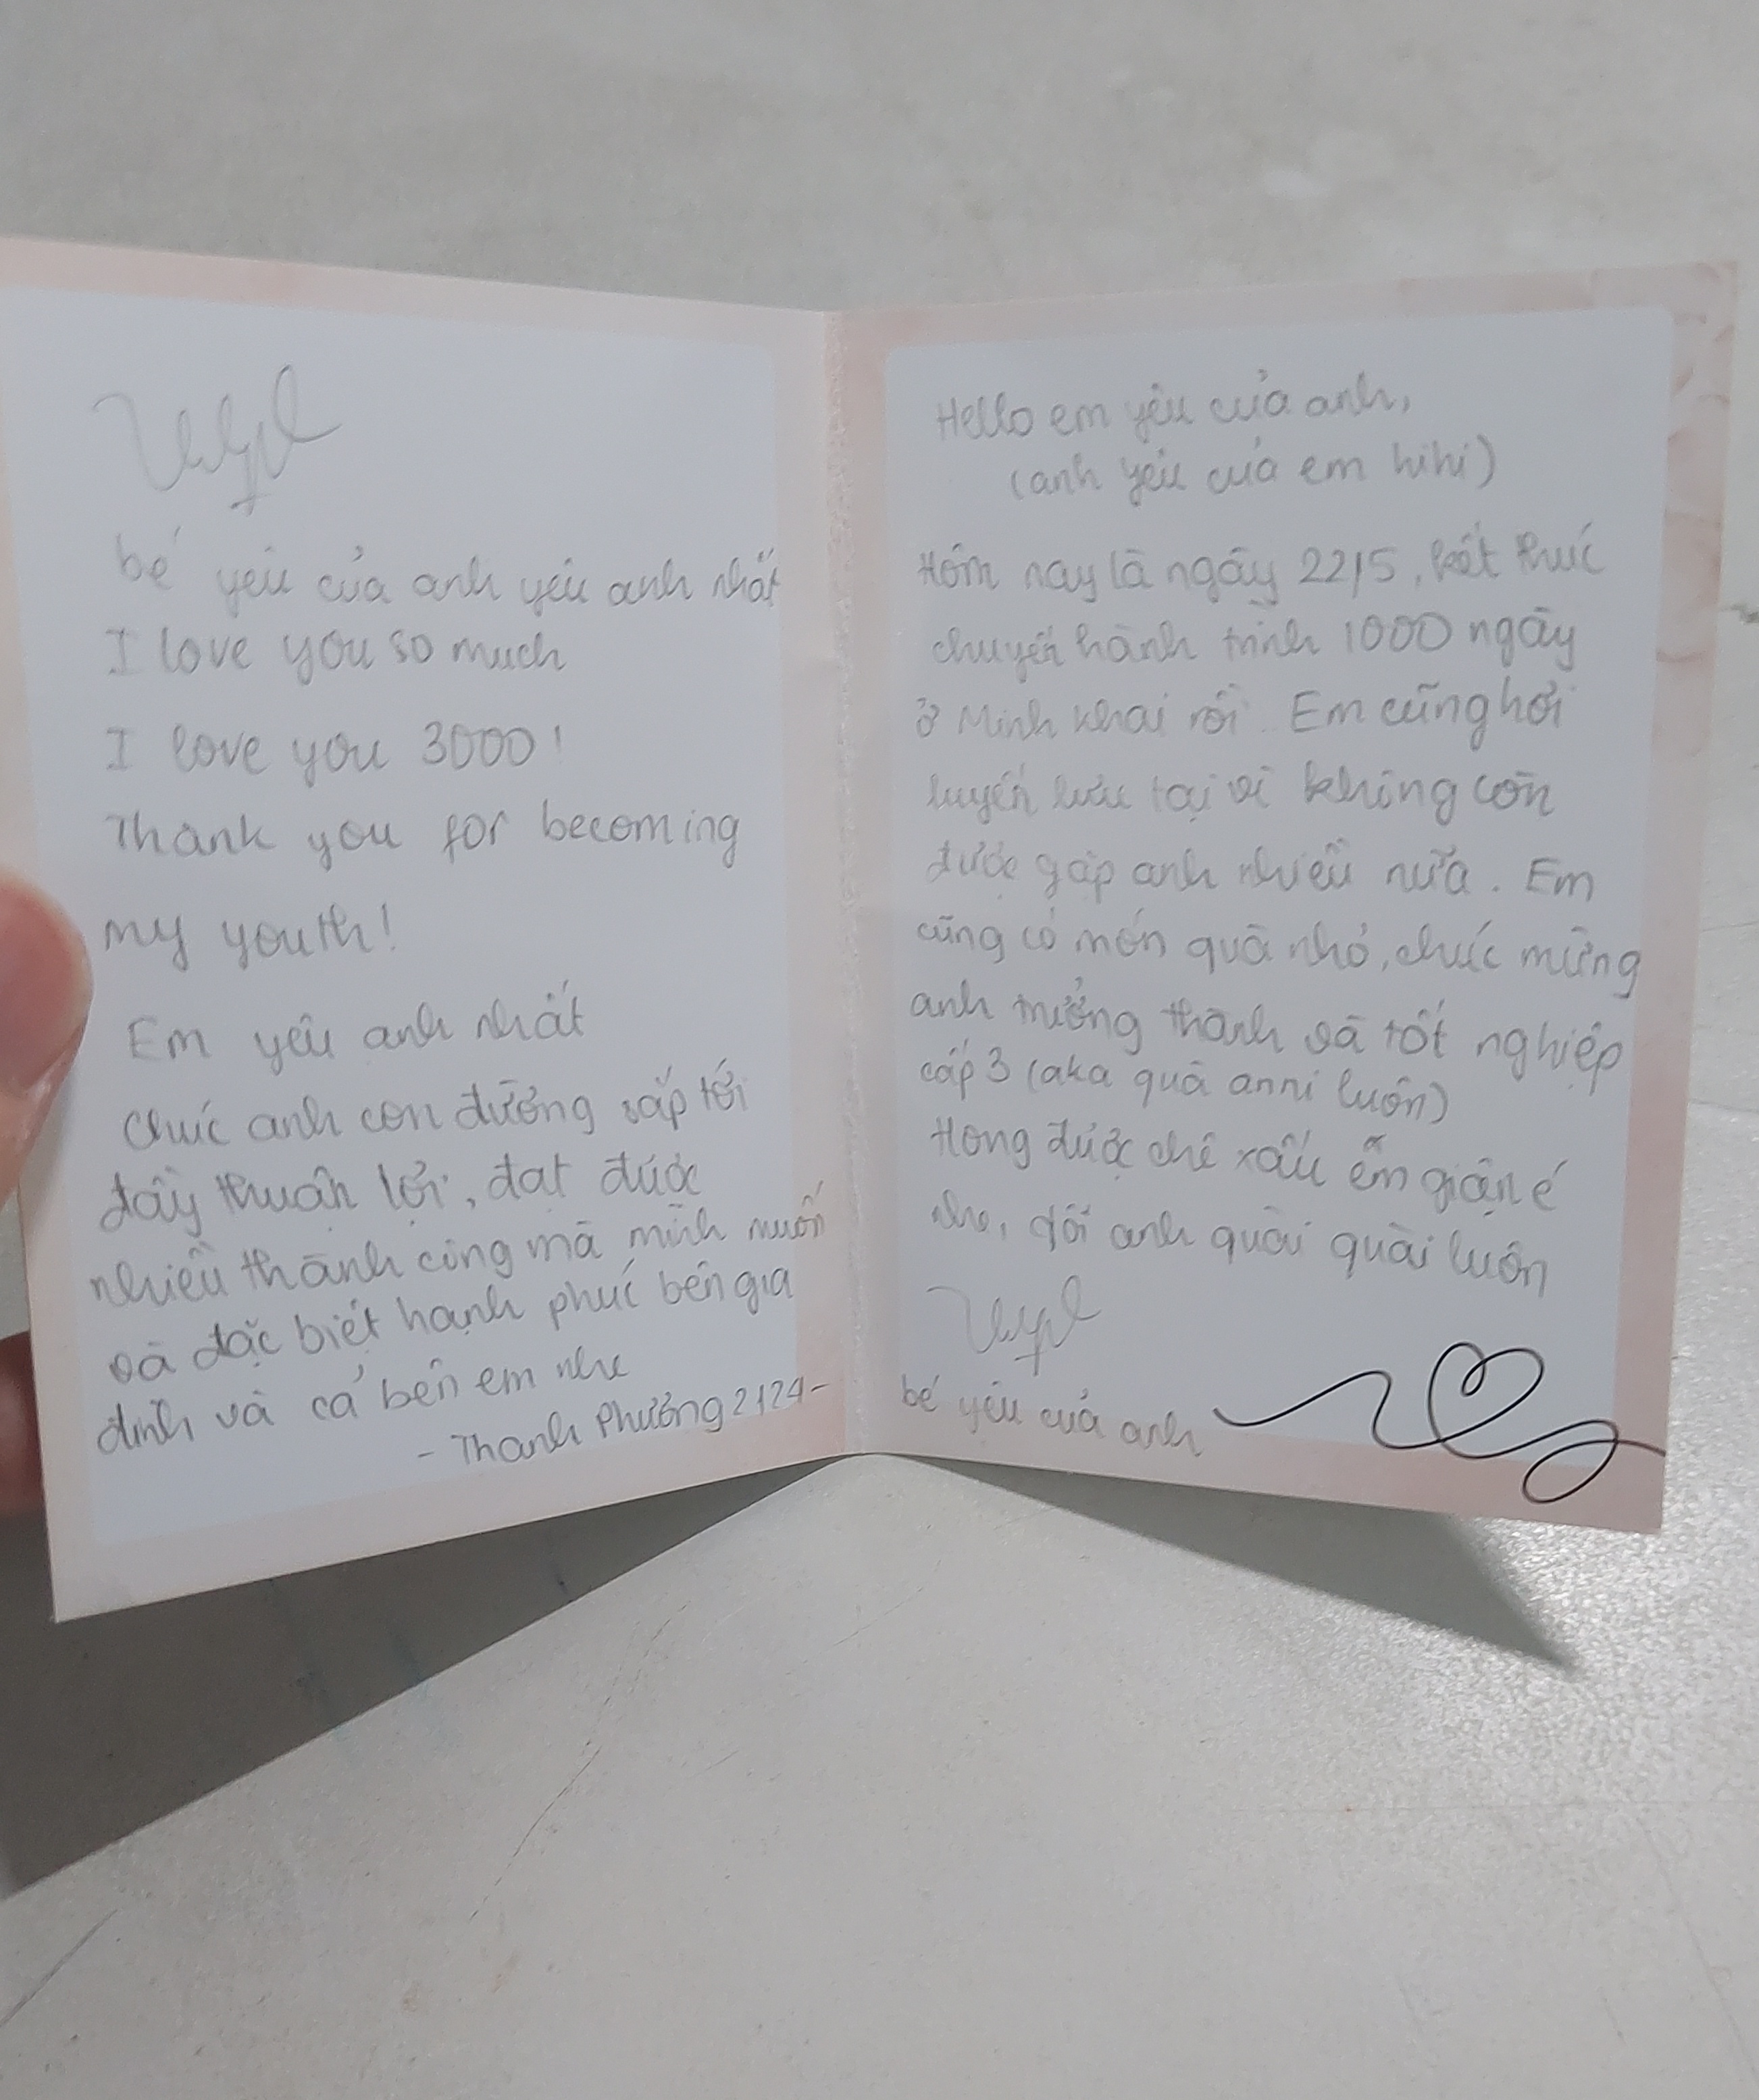 bé yêu của anh yêu anh nhất
I love you so much
I love you 3000!
Thank you for becoming
my youth!
Em yêu anh nhất
Chúc anh con đường sắp tới
đầy thuận lợi, đạt được
nhiều thành công mà mình muốn
và đặc biệt hạnh phúc bên gia
đình và cả bên em nhe
- Thanh Phương 2124 -
Hello em yêu của anh,
(anh yêu của em hihi)
Hôm nay là ngày 22/5, kết thúc
chuyến hành trình 1000 ngày
ở Minh Khai rồi. Em cũng hơi
luyến lưu tại vì không còn
được gặp anh nhiều nữa. Em
cũng có món quà nhỏ, chúc mừng
anh trưởng thành và tốt nghiệp
cấp 3 (aka quà anni luôn)
Hong được chê xấu ẻm giận é
nhe, dỗi anh quài quài luôn
bé yêu của anh